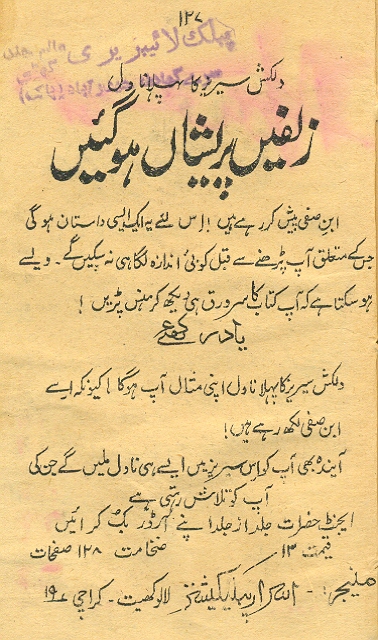 ۱۲۷
پبلک لائبریری
دلکش سیریز کا پہلا ناول
زلفیں پریشاں ہو گئیں
ابنِ صفی پیش کر رہے ہیں! اِس لئے یہ ایک ایسی داستان ہوگی
جس کے متعلق آپ پڑھنے سے قبل کوئی اندازہ لگا ہی نہ سکیں گے۔ ویسے
ہو سکتا ہے کہ آپ کتاب کا سرورق ہی دیکھ کر ہنس پڑیں!
یاد رکھئے
دلکش سیریز کا پہلا ناول اپنی مثال آپ ہوگا! کیونکہ اسے
ابن صفی لکھ رہے ہیں!
آیندہ بھی آپ کو اِس سیریز میں ایسے ہی ناول ملیں گے جن کی
آپ کو تلاش رہتی ہے
ایجنٹ حضرات جلد از جلد اپنے آرڈر بک کرائیں
قیمت ۱۳ ضخامت ۱۲۸ صفحات
منیجر:- اسرار پبلیکیشنز لالوکھیت - کراچی ۱۹